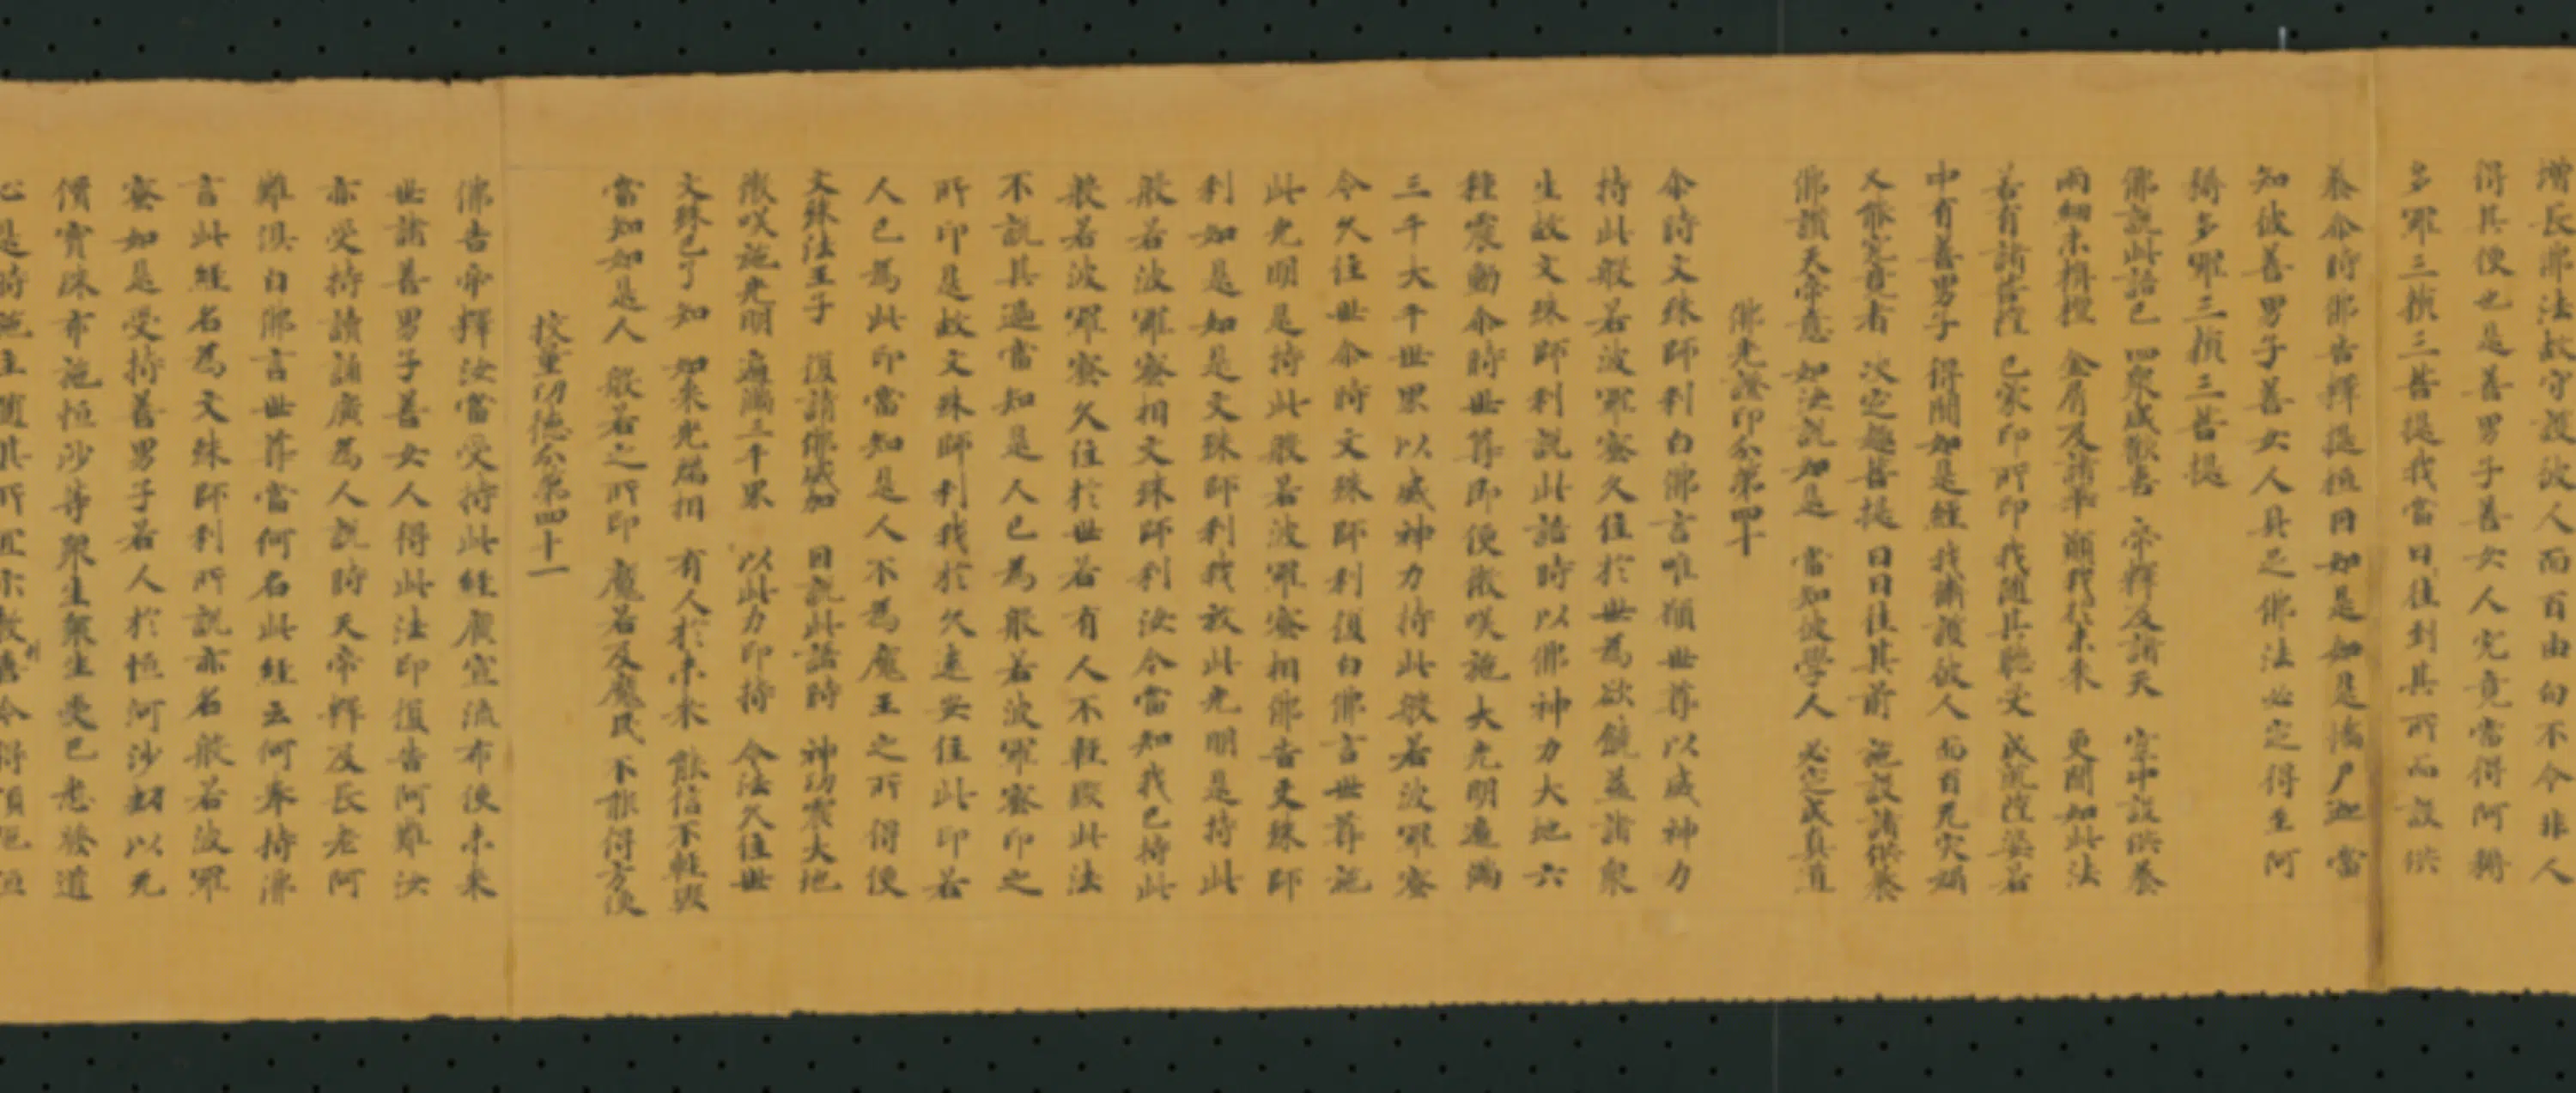 增長佛法故守護彼人面百由旬不令非人
得其便也是善男子善女人究竟當得阿耨
多羅三藐三菩提我當日往到其所而設供
養尒時佛告釋提桓因如是如是憍尸迦當
知彼善男子善女人具足佛法必定得至阿
耨多羅三藐三菩提
佛說此語已 四衆咸歡喜 帝釋及諸天 空中設供養
雨細末栴檀 金屑及諸華 願我於未來 更聞如此法
若有諸菩薩 已蒙印所印 我隨其聽受
中有善男子 得聞如是經 我衛護彼人 面百
又能究竟者 決定趣菩提 日日往其前 施設諸供養
佛讚天帝意 如汝說如是 當知彼學人 必定成真道
佛光證印分第四十
尒時文殊師利白佛言唯願世尊以威神力
持此般若波羅蜜久住於世為欲饒益諸衆
生故文殊師利說此語時以佛神力大地六
種震動尒時世尊即便微咲施大光明遍滿
三千大千世界以威神力持此般若波羅蜜
令久住世尒時文殊師利復白佛言世尊施
此光明是持此般若波羅蜜相佛告文殊師
利如是如是文殊師利我放此光明是持此
般若波羅蜜相文殊師利汝今當知我已持此
般若波羅蜜久住於世若有人不輕毀此法
不說其過當知是人已為般若波羅蜜印之
所印是故文殊師利我於久遠安住此印若
人已為此印當知是人不為魔王之所得便
文殊法王子 復請佛威加 因說此語時 神功震大地
微咲施光明 遍滿三千界 以此力印持 令法久住世
文殊已了知 如來光瑞相 有人於未來 能信不輕毀
當知如是人 般若之所印 魔若及魔民 不能得方便
挍量功德分第四十一
佛告帝釋汝當受持此經廣宣流布使未來
世諸善男子善女人得此法印復告阿難汝
亦受持讀誦廣為人說時天帝釋及長老阿
難俱白佛言世尊當何名此經云何奉持佛
言此經名為文殊師利所說亦名般若波羅
蜜如是受持善男子若人於恒河沙劫以无
價寶珠布施恒沙等衆生衆生受已悉發道
心是時施主隨其所宜示教